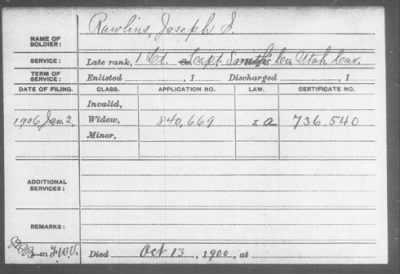 NAME OF SOLDIER: Rawlins, Joseph S.
SERVICE: Late rank, 1 Lt. Capt. Smith's Co. Utah Cav.
TERM OF SERVICE: Enlisted , 1 Discharged , 1
DATE OF FILING. CLASS. APPLICATION NO. LAW. CERTIFICATE NO.
Invalid,
1906 Jan. 2, Widow, 840,669 a 736.540
Minor,
ADDITIONAL SERVICES:
REMARKS:
Died Oct 13, 1900, at